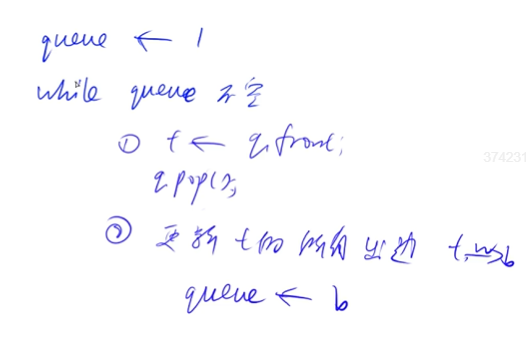 queue ← 1
while queue 不空
① t ← q.front;
q.pop();
② 更新t的所有出边 t -w-> b
queue ← b
374231